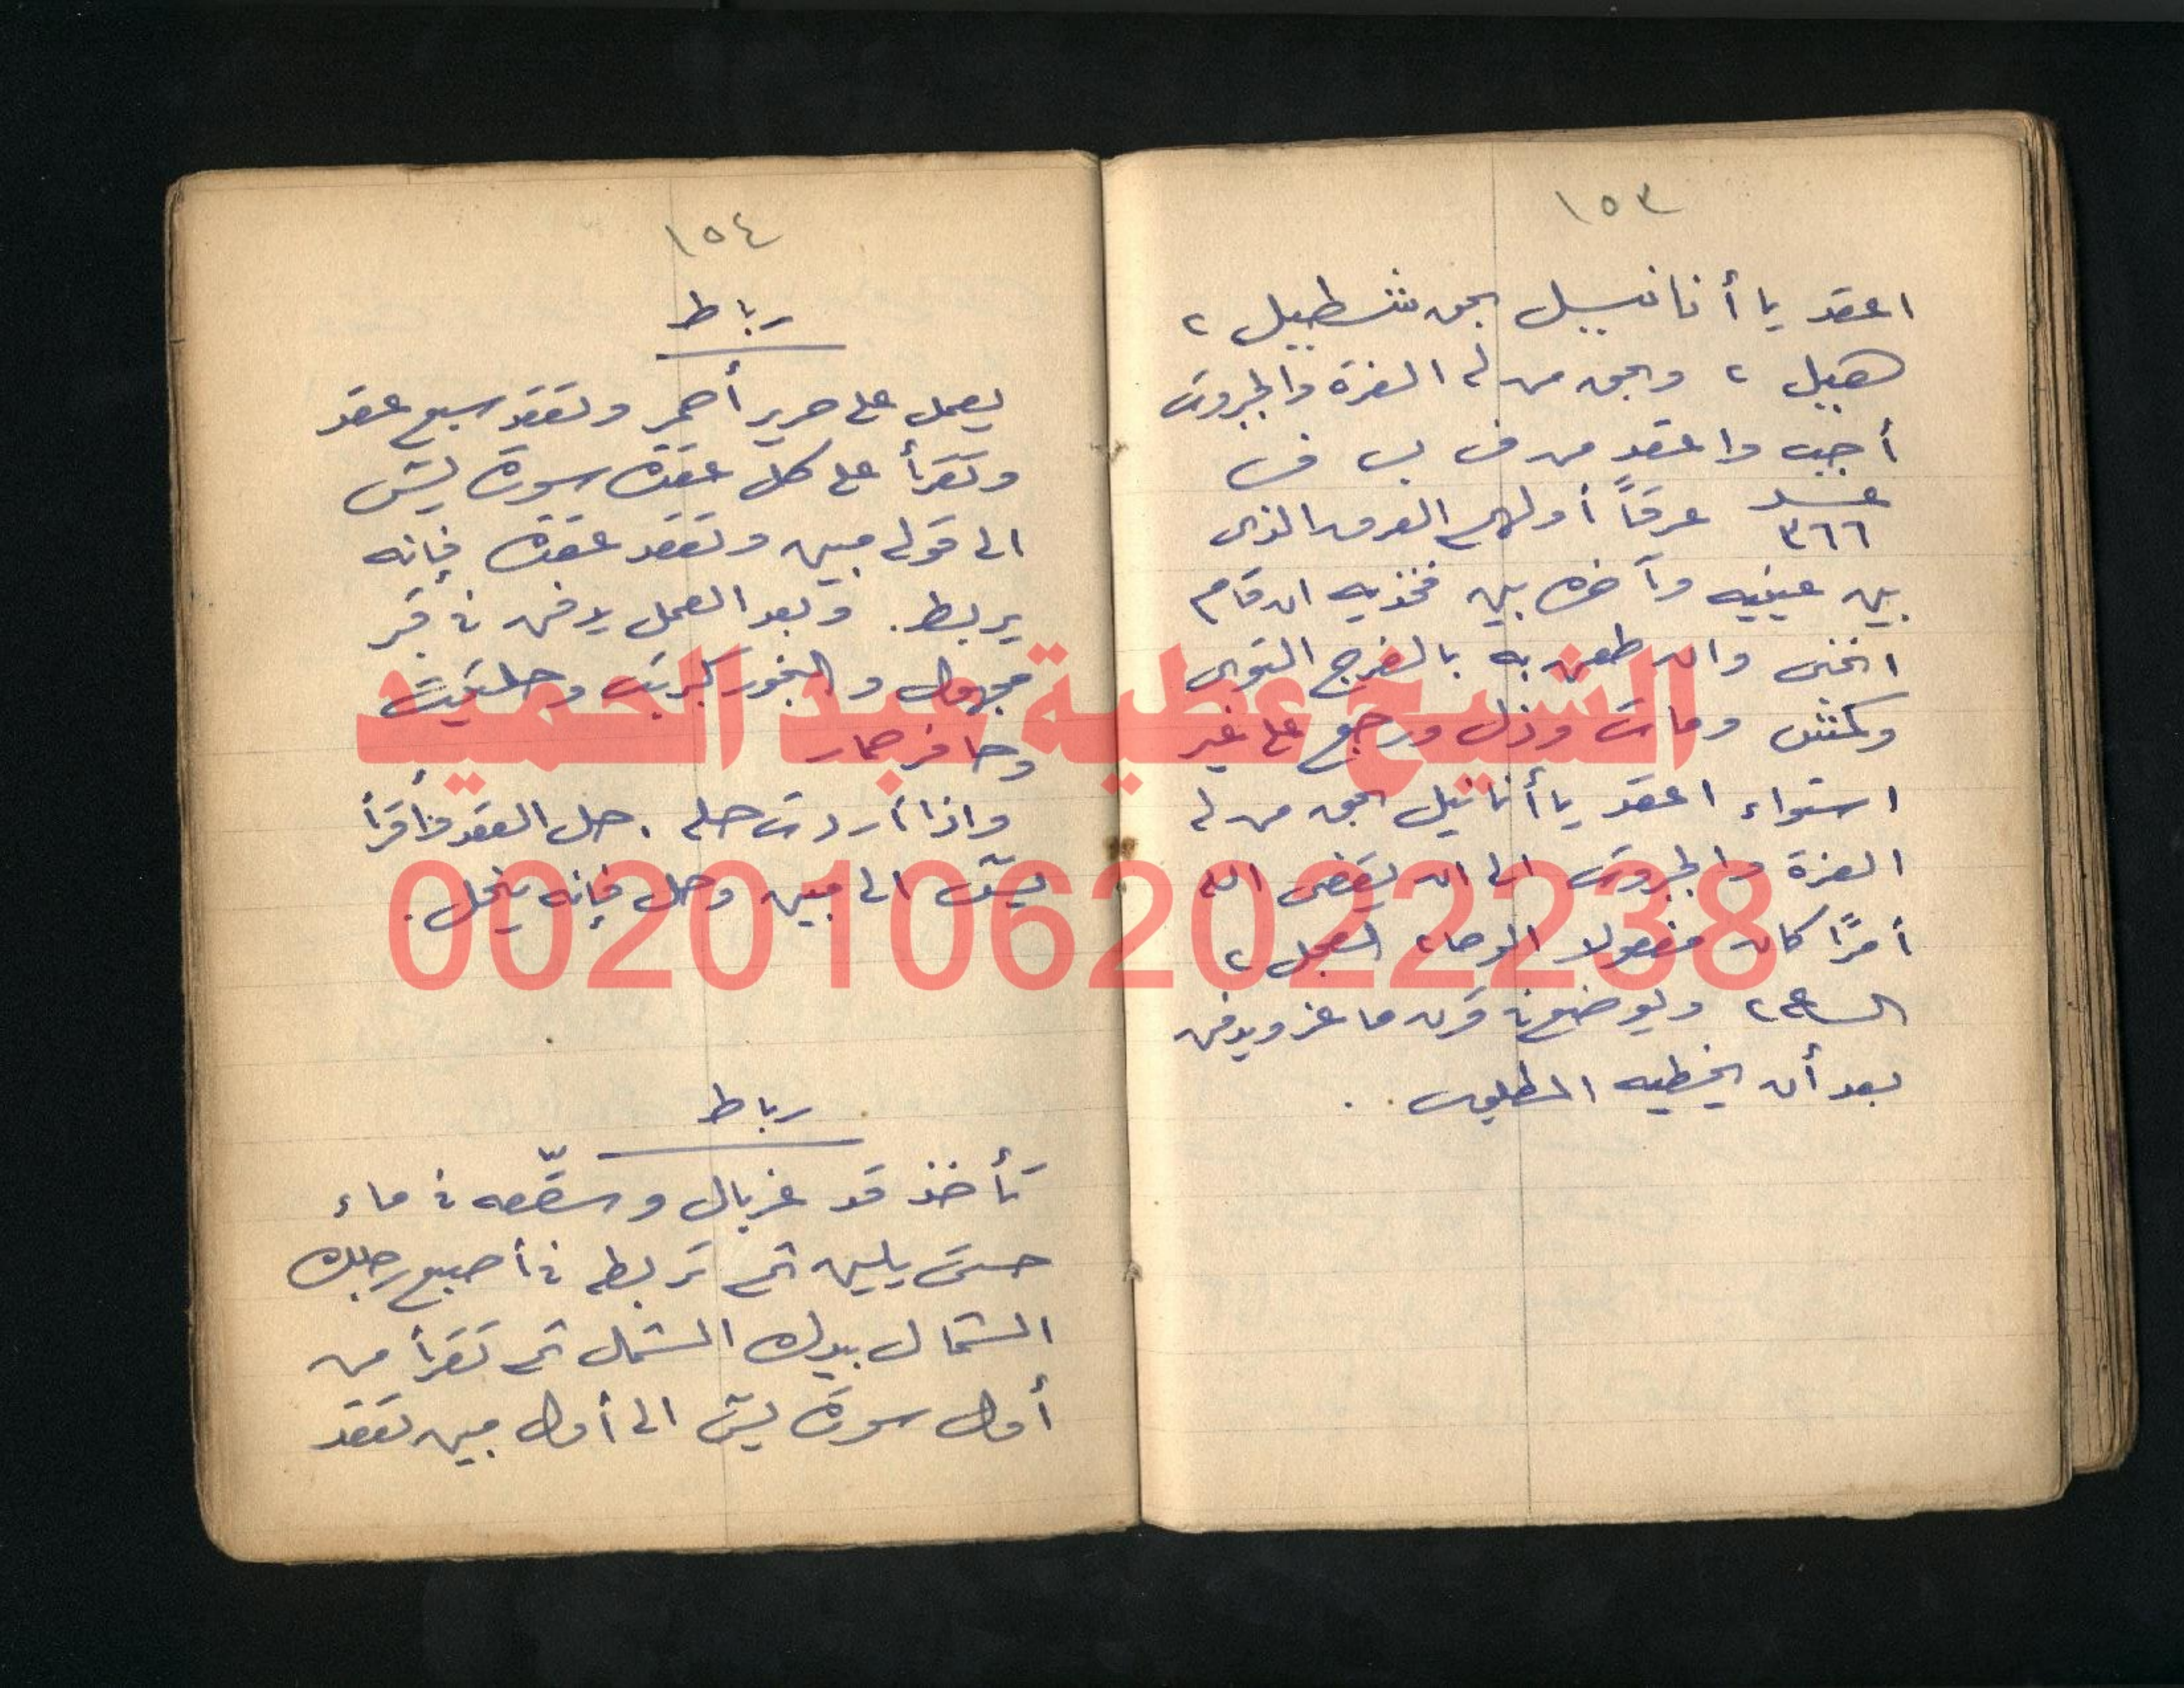 ١٥٣
اعقد يا أنانييل بحق شطبيل ٢
هبيل ٢ وبحق من له العزة والجبروت
أجب واعقد من ف ب ف
عدد ٣٦٦ عرقاً أولهم العرق الذى
بين عينيه وآخره بين فخذيه ان قام
انحنى وان طعن به بالفرج التوى
وكمش ومات وذل ورجع على غير
استواء اعقد يا أنانيل بحق من له
العزة والجبروت الى ان يقضى الله
أمرًا كان مفعولا الوحا ٢ العجل ٢
الساعة ٢ ويوضع فى قرن ماعز ويدفن
بعد أن يخطيه المطلوب .
١٥٤
رباط
يعمل على حرير أحمر وتعقد سبع عقد
وتقرأ على كل عقدة سورة يس
الى قوله مبين وتعقد عقدة فإنه
يربط . وبعد العمل يدفن فى قبر
مجهول والبخور كبريت وحلتيت
وحافر حمار
واذا أردت حله . حل العقد واقرأ
يس الى مبين وحل فإنه ينحل .
رباط
تأخذ قد غربال وسقّعه فى ماء
حتى يلين ثم تربطه فى أصبع رجلك
الشمال بيدك الشمال ثم تقرأ من
أول سورة يس الى أول مبين تعقد
الشيخ عطية عبد الحميد
00201062022238